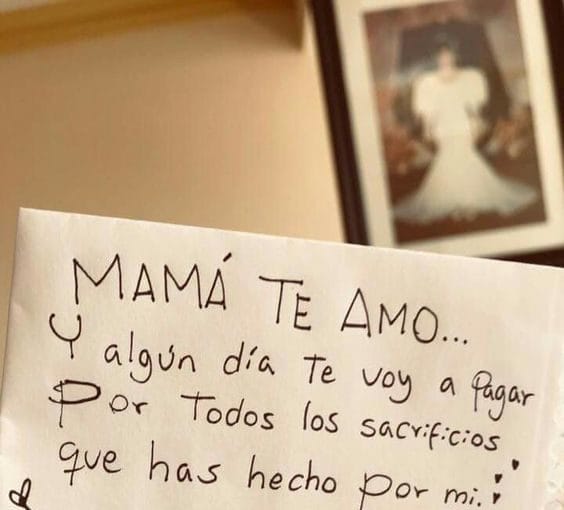 MAMÁ TE AMO...
Y algún día Te voy a Pagar
Por Todos los sacrificios
que has hecho por mi.